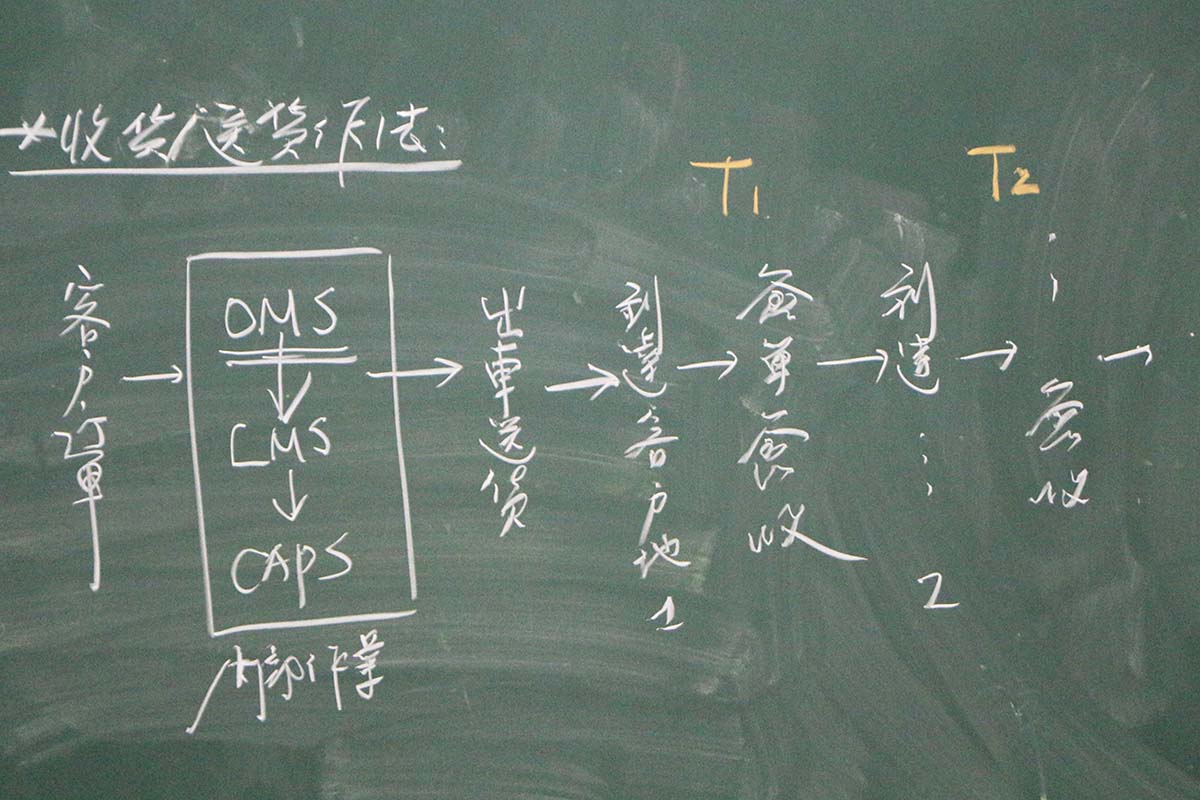 *收貨/送貨作法:
T1
T2
客戶訂單
→
OMS
↓
LMS
↓
CAPS
內部作業
→
出車送貨
→
到達客戶地1
→
簽單簽收
→
到達⋮⋮2
→
⋮簽收
→